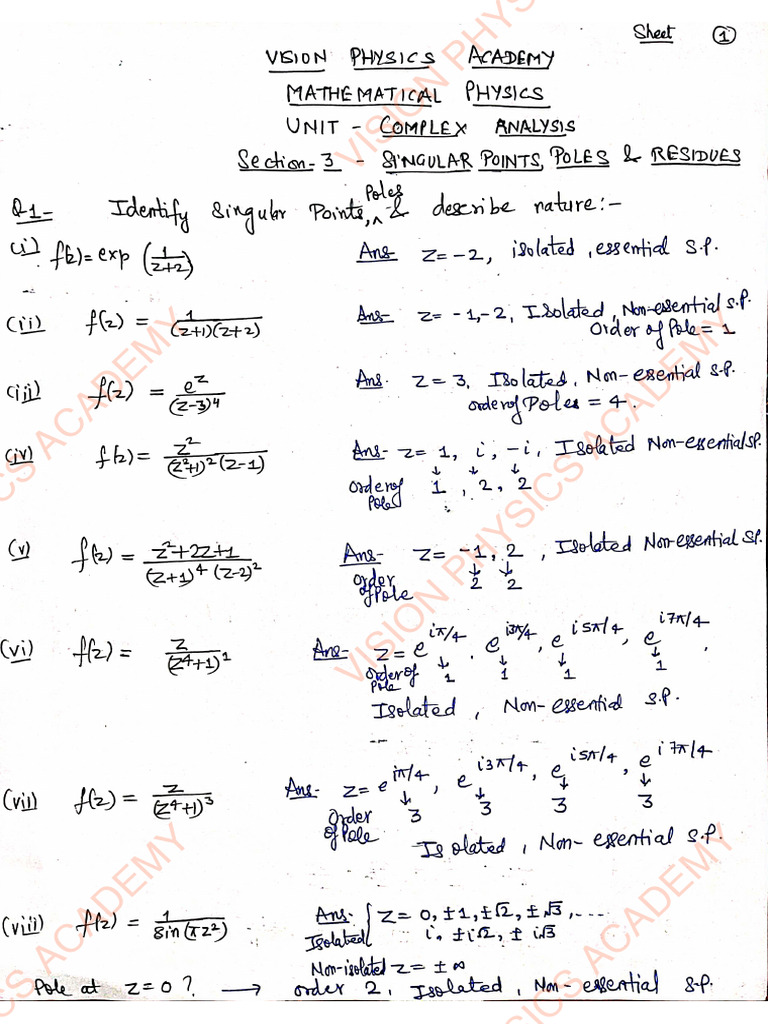 Sheet ①
VISION PHYSICS ACADEMY
MATHEMATICAL PHYSICS
UNIT - COMPLEX ANALYSIS
Section-3 - SINGULAR POINTS, POLES & RESIDUES
Q1- Identify Singular Points, Poles & describe nature:-
(i) f(z) = exp (1/(z+2)) Ans- z = -2, isolated, essential S.P.
(ii) f(z) = 1/((z+1)(z+2)) Ans- z = -1, -2, Isolated, Non-essential S.P.
Order of Pole = 1
(iii) f(z) = e^z/(z-3)^4 Ans. z = 3, Isolated, Non-esential S.P.
order of Poles = 4.
(iv) f(z) = z^2/((z^2+1)^2 (z-1)) Ans- z = 1, i, -i, Isolated Non-essential S.P.
↓ ↓ ↓
order of Pole 1, 2, 2
(v) f(z) = (z^2+2z+1)/((z+1)^4 (z-2)^2) Ans- z = -1, 2, Isolated Non-essential S.P.
↓ ↓
Order of Pole 2 2
(vi) f(z) = z/(z^4+1)^1 Ans- z = e^{iπ/4}, e^{i3π/4}, e^{i5π/4}, e^{i7π/4},
↓ ↓ ↓ ↓
Order of Pole 1 1 1 1
Isolated, Non-essential S.P.
(vii) f(z) = z/(z^4+1)^3 Ans- z = e^{iπ/4}, e^{i3π/4}, e^{i5π/4}, e^{i7π/4}
↓ ↓ ↓ ↓
Order of Pole 3 3 3 3
Isolated, Non-essential S.P.
(viii) f(z) = 1/sin(πz^2) Ans- Isolated { z = 0, ±1, ±√2, ±√3, ....
i, ±i√2, ± i√3
Non-isolated z = ± ∞
Pole at z = 0? → order 2, Isolated, Non-essential S.P.
VISION PHYSICS ACADEMY